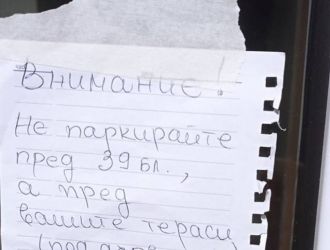 Внимание!
Не паркирайте
пред 39 бл.,
а пред
вашите тераси